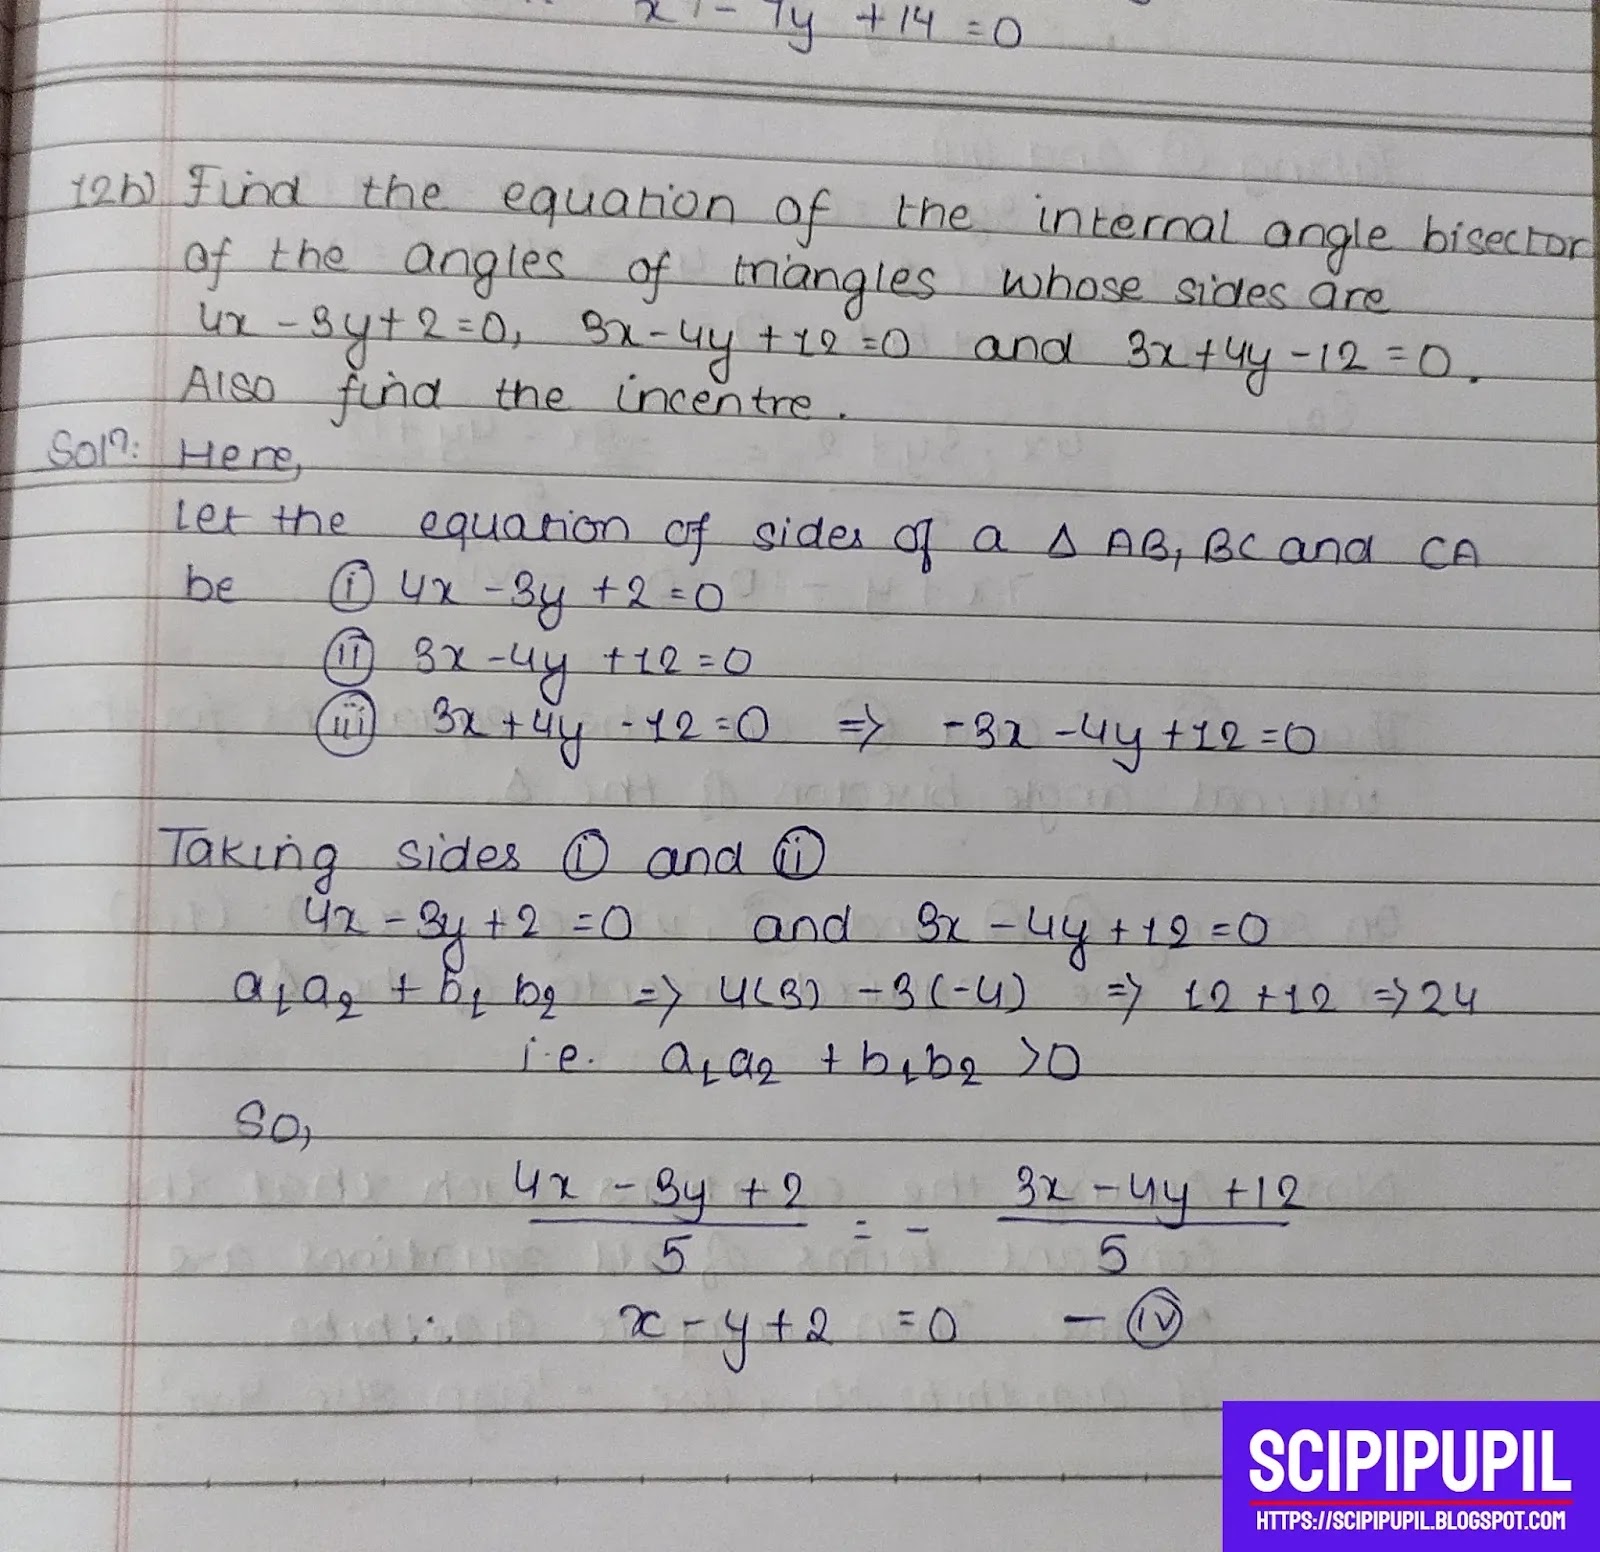 x - 7y + 14 = 0
12b) Find the equation of the internal angle bisector
of the angles of triangles whose sides are
4x - 3y + 2 = 0, 3x - 4y + 12 = 0 and 3x + 4y - 12 = 0.
Also find the incentre.
Solⁿ: Here,
Let the equation of sides of a Δ AB, BC and CA
be (i) 4x - 3y + 2 = 0
(ii) 3x - 4y + 12 = 0
(iii) 3x + 4y - 12 = 0 => -3x - 4y + 12 = 0
Taking sides (i) and (ii)
4x - 3y + 2 = 0 and 3x - 4y + 12 = 0
a₁a₂ + b₁b₂ => 4(3) - 3(-4) => 12 + 12 => 24
i.e. a₁a₂ + b₁b₂ > 0
So,
4x - 3y + 2 / 5 = - 3x - 4y + 12 / 5
∴ x - y + 2 = 0 - (iv)
SCIPIPUPIL
HTTPS://SCIPIPUPIL.BLOGSPOT.COM